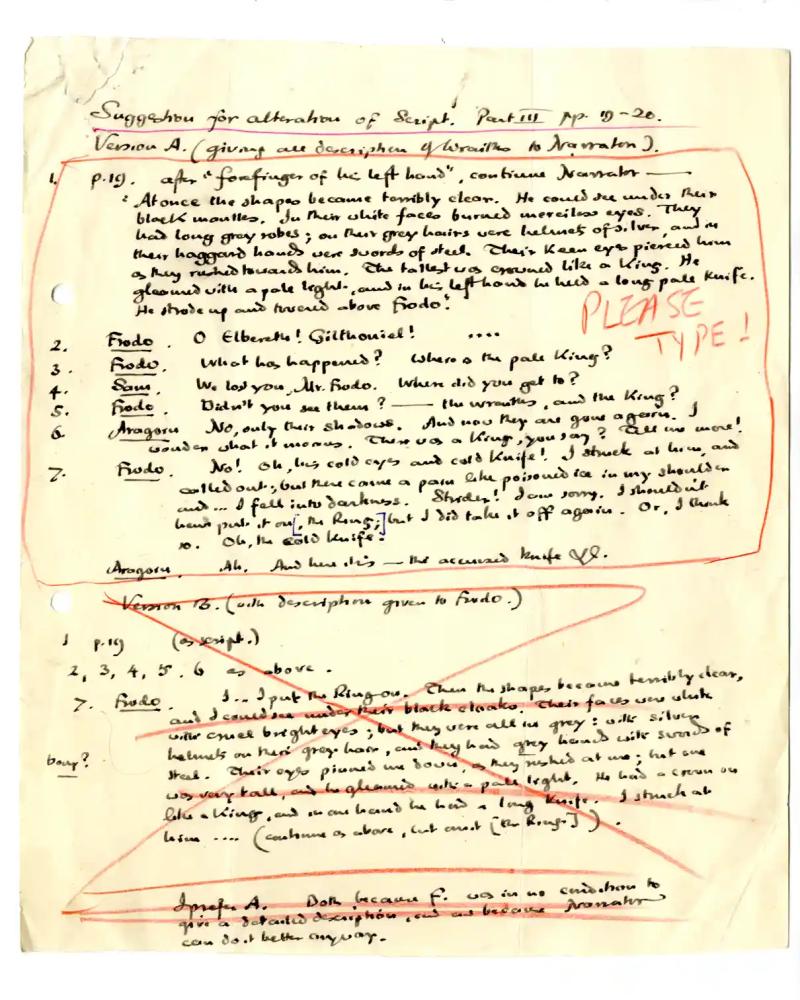 Suggestion for alteration of Script. Part III pp. 19-20.
Version A. (giving all description of Wraiths to Narrator).
1. p.19. after "forefinger of his left hand", continue Narrator —
"At once the shapes became terribly clear. He could see under their
black mantles. In their white faces burned merciless eyes. They
had long grey robes; on their grey hairs were helmets of silver, and in
their haggard hands were swords of steel. Their keen eyes pierced him
as they rushed towards him. The tallest was crowned like a King. He
gleamed with a pale light, and in his left hand he held a long pale knife.
He strode up and towered above Frodo".
PLEASE
TYPE!
2. Frodo. O Elbereth! Gilthoniel! ....
3. Frodo. What has happened? Where is the pale King?
4. Sam. We lost you, Mr. Frodo. Where did you get to?
5. Frodo. Didn't you see them? — the wraiths, and the King?
6. Aragorn No, only their shadows. And now they are gone again. I
wonder what it means. There was a King, you say? Tell me more!
7. Frodo. No! Oh, his cold eyes and cold knife! I struck at him, and
called out; but there came a pain like poisoned ice in my shoulder
and ... I fell into darkness. Strider! I am sorry. I shouldn't
have put it on [, the Ring;] but I did take it off again. Or, I think
so. Oh, the cold knife!
Aragorn. Ah. And here it is — the accursed knife
Version B. (with description given to Frodo.)
1 p.19 (as script.)
2, 3, 4, 5. 6 as above.
7. Frodo. I... I put the Ring on. Then the shapes became terribly clear,
and I could see under their black cloaks. Their faces were white
with cruel bright eyes; but they were all in grey: with silver
helmets on their grey hair, and they had grey hands with swords of
bony?
steel. Their eyes pinned me down, as they rushed at me; but one
was very tall, and he gleamed with a pale light. He had a crown on
like a King, and in one hand he had a long knife. I struck at
him .... (continue as above, but omit [the Ring]).
I prefer A. Both because F. was in no condition to
give a detailed description, and because Narrator
can do it better anyway.